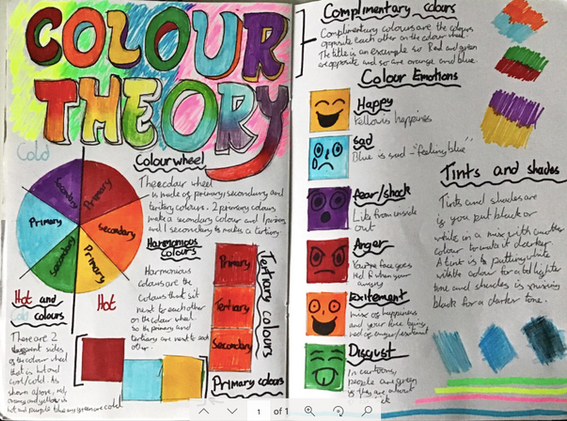 COLOUR
THEORY
Cold
Secondary
Primary
Primary
Secondary
Secondary
Primary
Hot
Hot and
cold colours
There are 2
sides
of the colour wheel
that is hot and
cold. As
shown above, red,
orange and yellow is
hot and purple blue and green are cold.
Colourwheel
The colour wheel
is made of primary, secondary, and
tertiary colours. 2 primary colours
make a secondary colour and 1 primary
and 1 secondary to makes a tertiary
Harmonious
colours
Harmonious
colours are the
colours that sit
next to each other
on the colour wheel
so the primary and
tertiary are next to each
other.
Primary
Tertiary
Secondary
Tertiary colours
Primary colours
Complimentary colours
Complimentary colours are the colours
opposite each other on the colour wheel.
The title is an example so Red and green
are opposite and so are orange and blue.
Colour Emotions
Happy
Yellow is happiness
sad
Blue is sad - "feeling blue"
fear/shock
from inside
out
Anger
Your face goes
red when your
angry
Exitement
mix of happiness
and your face going
red of anger/exitment
Disgust
In cartoons,
people are green
if they are
Tints and shades
Tints and shades are
if you put black or
white in a mix with another
colour to make it darker.
A tint is to putting white
with a colour for a lighter
tone and shades is mixing
black for a darker tone.
1 of 1